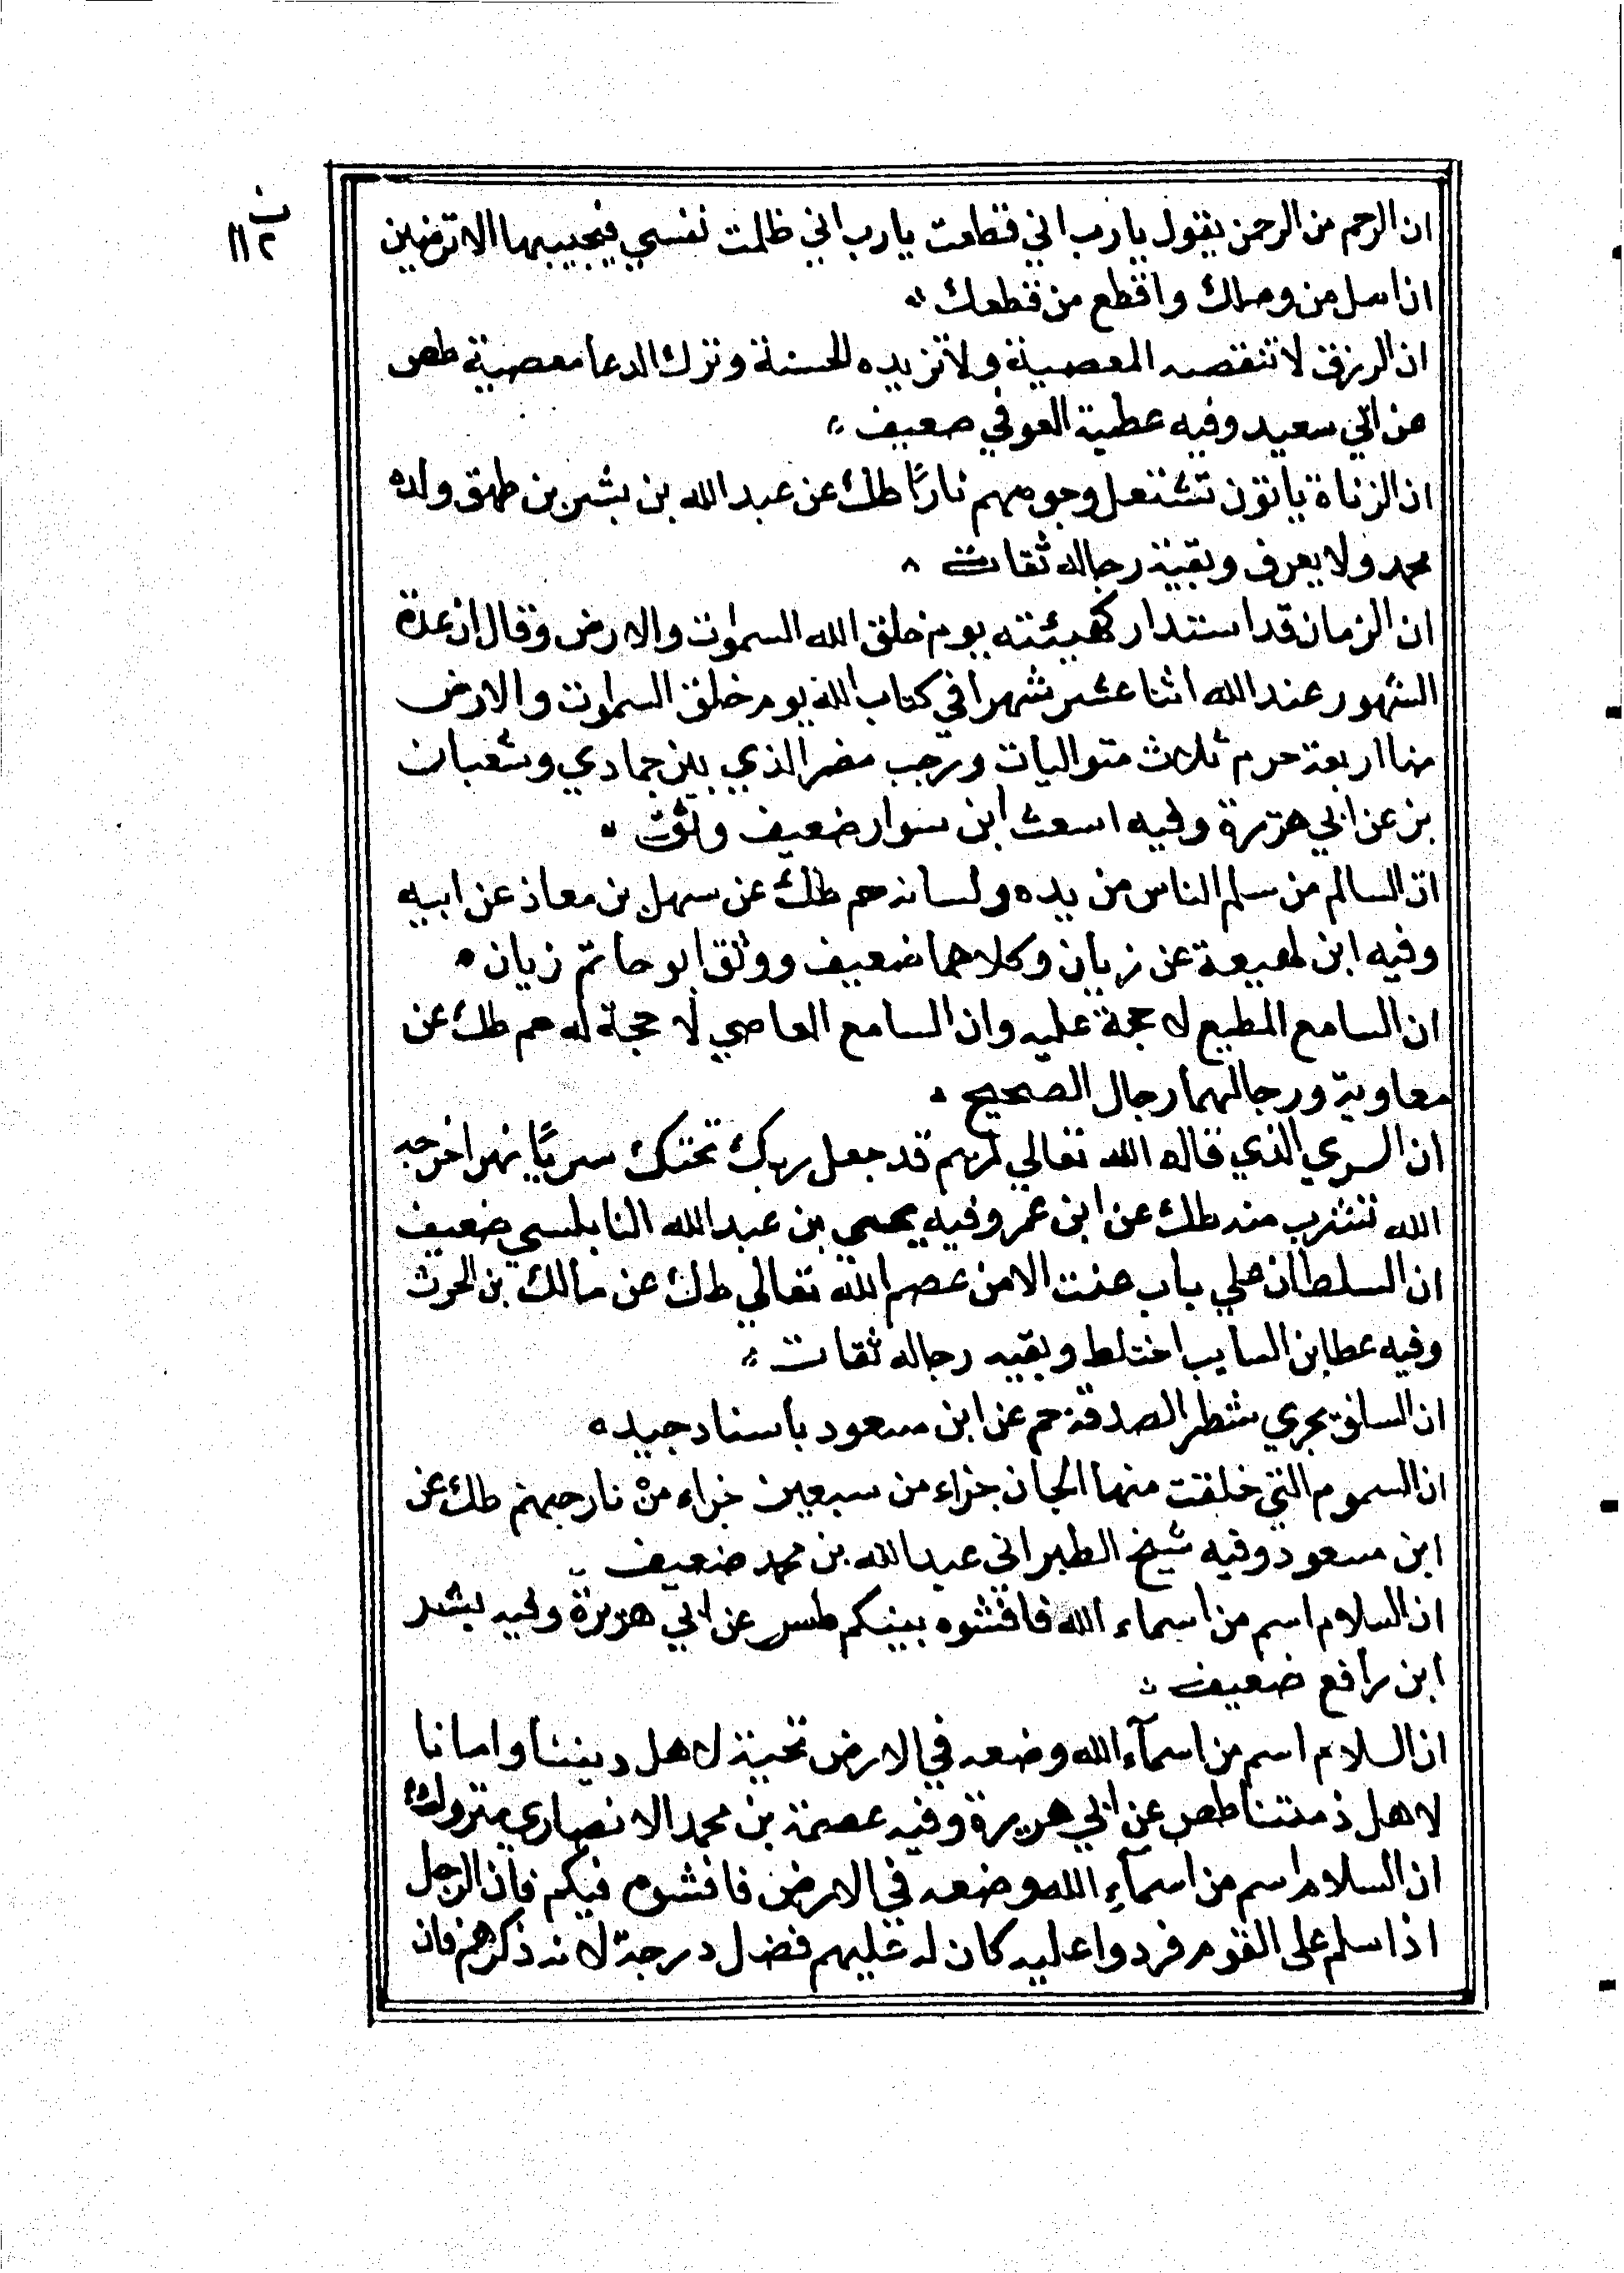 ن
١١٢
ان الرحم من الرحمن يقول يا رب اني قطعت يا رب اني ظلمت نفسي فيجيبها الا ترضين
ان اصل من وصلك واقطع من قطعك
ان الرزق لا تنقصه المعصية ولا تزيده الحسنة وترك الدعا معصية طص
عن ابي سعيد وفيه عطية العوفي ضعيف
ان الزناة ياتون تشتعل وجوههم نارًا طك عن عبد الله بن بشر من طريق ولده
محمد ولا يعرف وبقية رجاله ثقات
ان الزمان قد استدار كهيئته يوم خلق الله السموات والارض وقال ان عدة
الشهور عند الله اثنا عشر شهرا في كتاب الله يوم خلق السموات والارض
منها اربعة حرم ثلاث متواليات ورجب مضر الذي بين جمادي وشعبان
بز عن ابي هريرة وفيه اسعث ابن سوار ضعيف وثق
ان السالم من سلم الناس من يده ولسانه حم طك عن سهل بن معاذ عن ابيه
وفيه ابن لهيعة عن زبان وكلاهما ضعيف ووثق ابو حاتم زبان
ان السامع المطيع لا حجة عليه وان السامع العاصي لا حجة له حم طك عن
معاوية ورجالهما رجال الصحيح
ان السري الذي قاله الله تعالي لمريم قد جعل ربك تحتك سريًا نهر اخرجه
الله تشرب منه طك عن ابن عمر وفيه يحيي بن عبد الله النابلسي ضعيف
ان السلطان علي باب عنت الا من عصم الله تعالي طك عن مالك بن الحرث
وفيه عطا بن السايب اختلط وبقيه رجاله ثقات
ان السلف يجري شطر الصدقة حم عن ابن مسعود باسناد جيد
ان السموم التي خلقت منها الجان جزاء من سبعين جزاء من نار جهنم طك عن
ابن مسعود وفيه شيخ الطبراني عبد الله بن محمد ضعيف
ان السلام اسم من اسماء الله فافشوه بينكم طس عن ابي هريرة وفيه بشر
ابن رافع ضعيف
ان السلام اسم من اسمآء الله وضعه في الارض تحية لاهل ديننا وامانا
لاهل ذمتنا طص عن ابي هريرة وفيه عصمة بن محمد الانصاري متروك
ان السلام اسم من اسمآء الله وضعه في الارض فافشوه فيكم فان الرجل
اذا سلم على القوم فردوا عليه كان له عليهم فضل درجة لانه ذكرهم فان